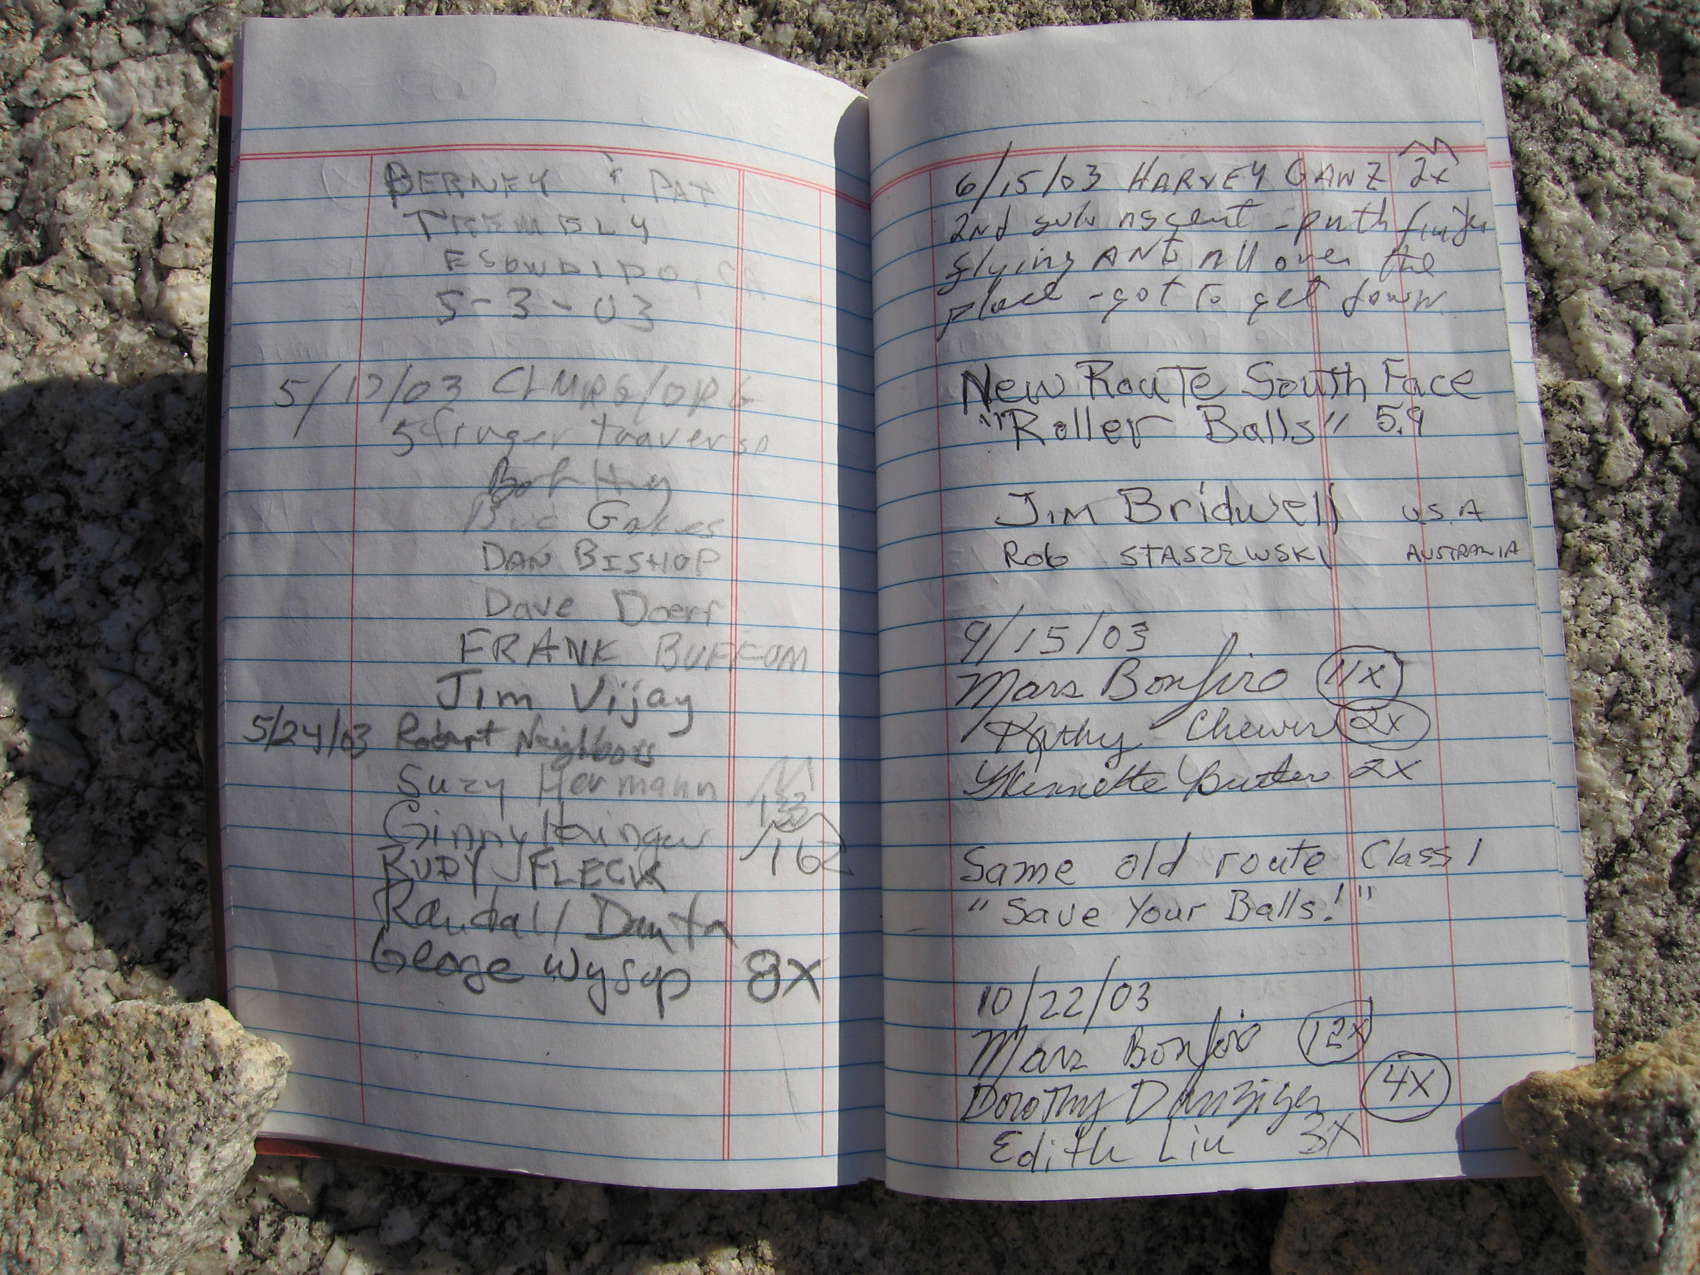 BERNEY & PAT
TREMBLY
5-3-03
5/17/03
5 finger traverse
DAN BISHOP
Dave Doerf
FRANK BUFFOM
Jim Vijay
5/24/03 Robert Neighbors
Suzy Hermann 133
Ginny 162
RUDY FLECK
Randall Danta
George Wysup 8X
6/15/03 HARVEY GANZ 2x
2nd solo ascent -
flying AND All over the
place - got to get down
New Route South Face
"Roller Balls" 5.9
Jim Bridwell U.S.A
Rob STASZEWSKI AUSTRALIA
9/15/03
Mars Bonfire 11x
Kathy Cheever 2x
2X
Same old route Class 1
"Save Your Balls!"
10/22/03
Mars Bonfire 12x
Dorothy Danziger 4X
Edith Liu 3X